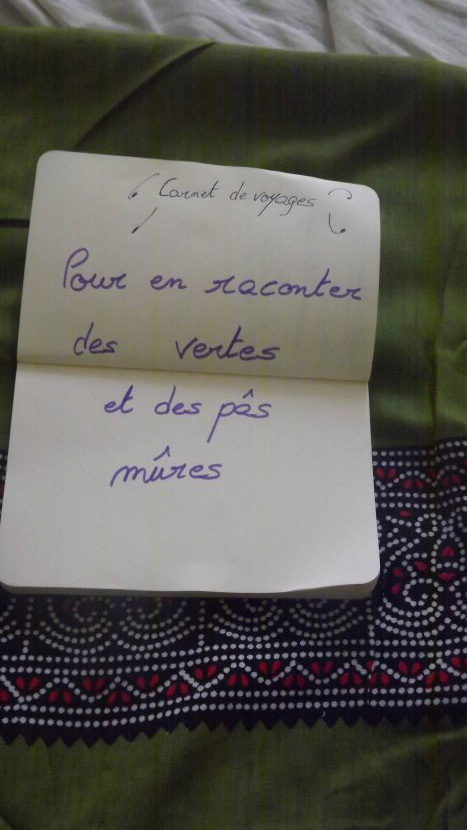 Carnet de voyages
Pour en raconter
des vertes
et des pâs
mûres